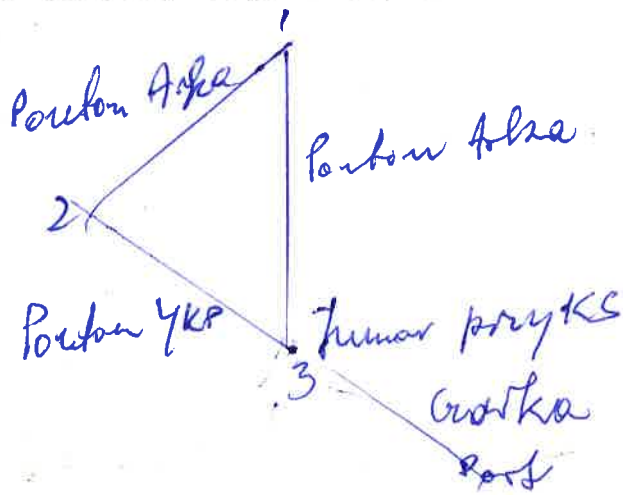 1
Ponton Arka
Ponton Arka
2
Ponton YKP
Jumar przy KS
3
Rort